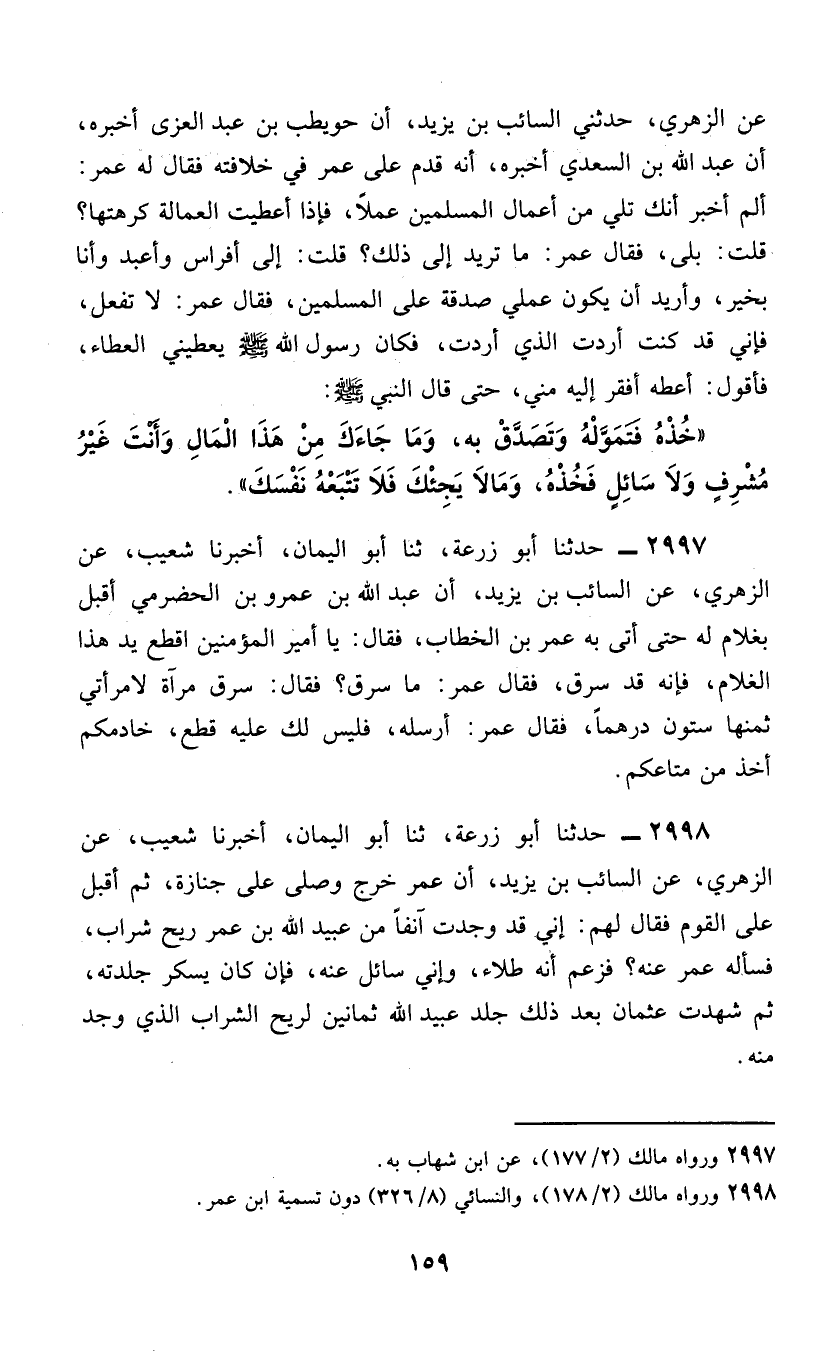 عن الزهري، حدثني السائب بن يزيد، أن حويطب بن عبد العزى أخبره،
أن عبد الله بن السعدي أخبره، أنه قدم على عمر في خلافته فقال له عمر:
ألم أخبر أنك تلي من أعمال المسلمين عملاً، فإذا أعطيت العمالة كرهتها؟
قلت: بلى، فقال عمر: ما تريد إلى ذلك؟ قلت: إلى أفراس وأعبد وأنا
بخير، وأريد أن يكون عملي صدقة على المسلمين، فقال عمر: لا تفعل،
فإني قد كنت أردت الذي أردت، فكان رسول الله ﷺ يعطيني العطاء،
فأقول: أعطه أفقر إليه مني، حتى قال النبي ﷺ:
«خُذْهُ فَتَمَوَّلْهُ وَتَصَدَّقْ به، وَمَا جَاءَكَ مِنْ هَذَا الْمَالِ وَأَنْتَ غَيْرُ
مُشْرِفٍ وَلاَ سَائِلٍ فَخُذْهُ، وَمَالاَ يَجِئْكَ فَلاَ تَتْبَعْهُ نَفْسَكَ».
٢٩٩٧ ـ حدثنا أبو زرعة، ثنا أبو اليمان، أخبرنا شعيب، عن
الزهري، عن السائب بن يزيد، أن عبد الله بن عمرو بن الحضرمي أقبل
بغلام له حتى أتى به عمر بن الخطاب، فقال: يا أمير المؤمنين اقطع يد هذا
الغلام، فإنه قد سرق، فقال عمر: ما سرق؟ فقال: سرق مرآة لامرأتي
ثمنها ستون درهماً، فقال عمر: أرسله، فليس لك عليه قطع، خادمكم
أخذ من متاعكم.
٢٩٩٨ ـ حدثنا أبو زرعة، ثنا أبو اليمان، أخبرنا شعيب، عن
الزهري، عن السائب بن يزيد، أن عمر خرج وصلى على جنازة، ثم أقبل
على القوم فقال لهم: إني قد وجدت آنفاً من عبيد الله بن عمر ريح شراب،
فسأله عمر عنه؟ فزعم أنه طلاء، وإني سائل عنه، فإن كان يسكر جلدته،
ثم شهدت عثمان بعد ذلك جلد عبيد الله ثمانين لريح الشراب الذي وجد
منه.
٢٩٩٧ ورواه مالك (٢/ ١٧٧)، عن ابن شهاب به.
٢٩٩٨ ورواه مالك (٢/ ١٧٨)، والنسائي (٨/ ٣٢٦) دون تسمية ابن عمر.
١٥٩